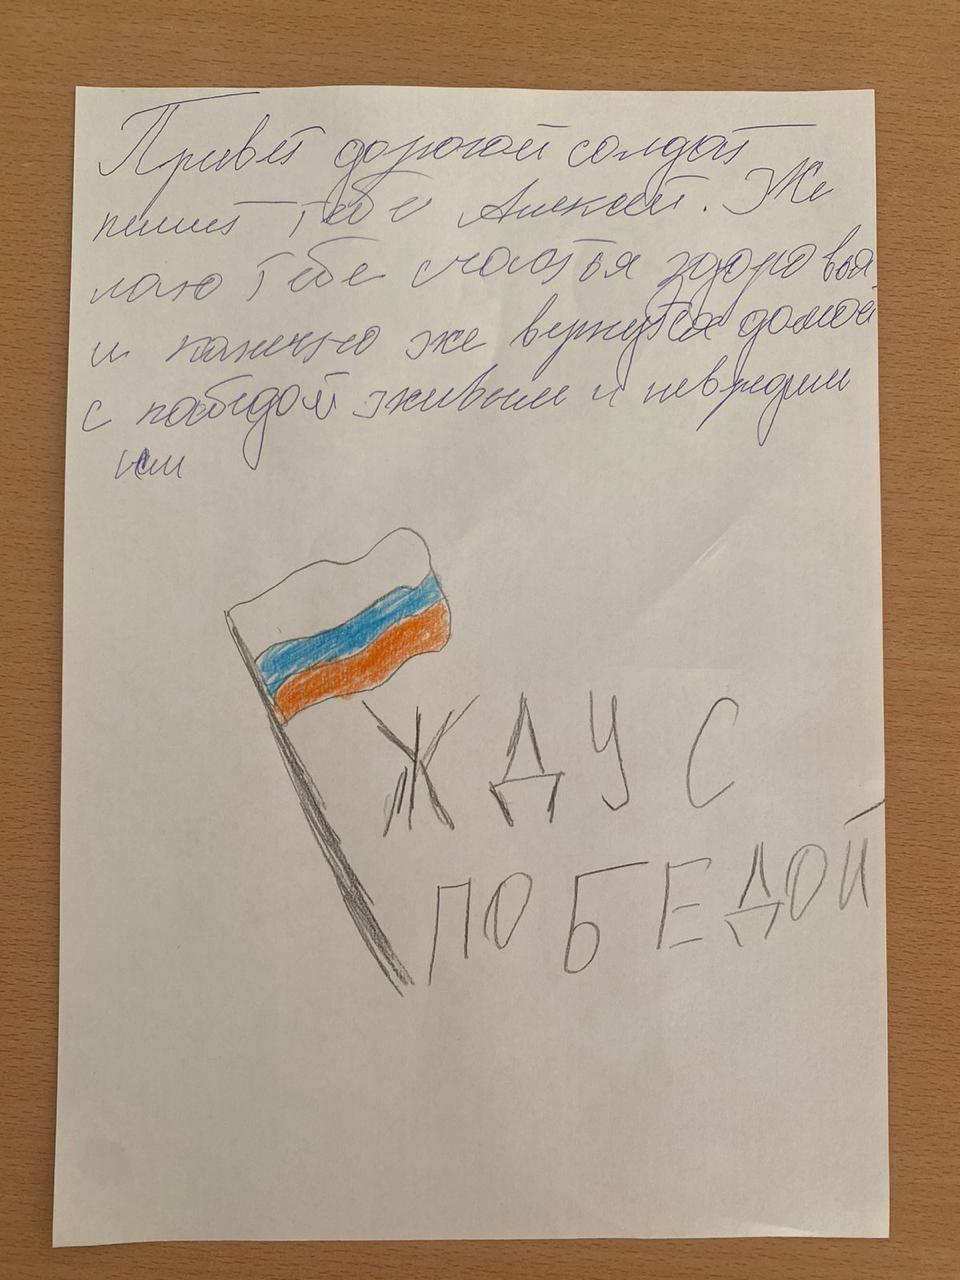 Привет дорогой солдат
пишет тебе Алексей. Же
лаю тебе счастья здоровья
и конечно же вернутся домой
с победой живым и невредим
ым
ЖДУ С
ПОБЕДОЙ